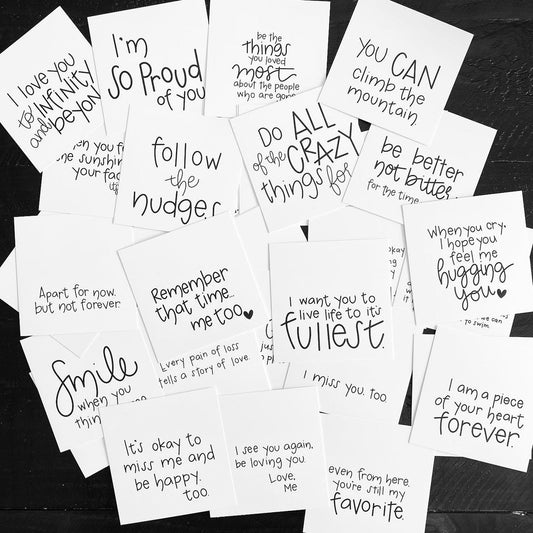 I love you
to INFINITY
and BEYON
I'm
so Proud
of you
be the
things
you loved
most
about the people
who are gone
you CAN
climb the
mountain.
you f
sunshin
your fac
follow
the
nudges
Do ALL
of the CRAZY
things for
be better
not bitter
for the time
Apart for now.
but not forever.
Remember
that time...
me too.
okay
When you cry,
I hope you
feel me
hugging
you
I want you to
live life to it's
fullest.
we can
to swim
Smile
when you
thin
Every pain of loss
tells a story of love.
I miss you, too.
I am a piece
of your heart
forever.
It's okay to
miss me and
be happy.
too.
I see you again,
be loving you.
Love,
Me
even from here,
you're still my
favorite.